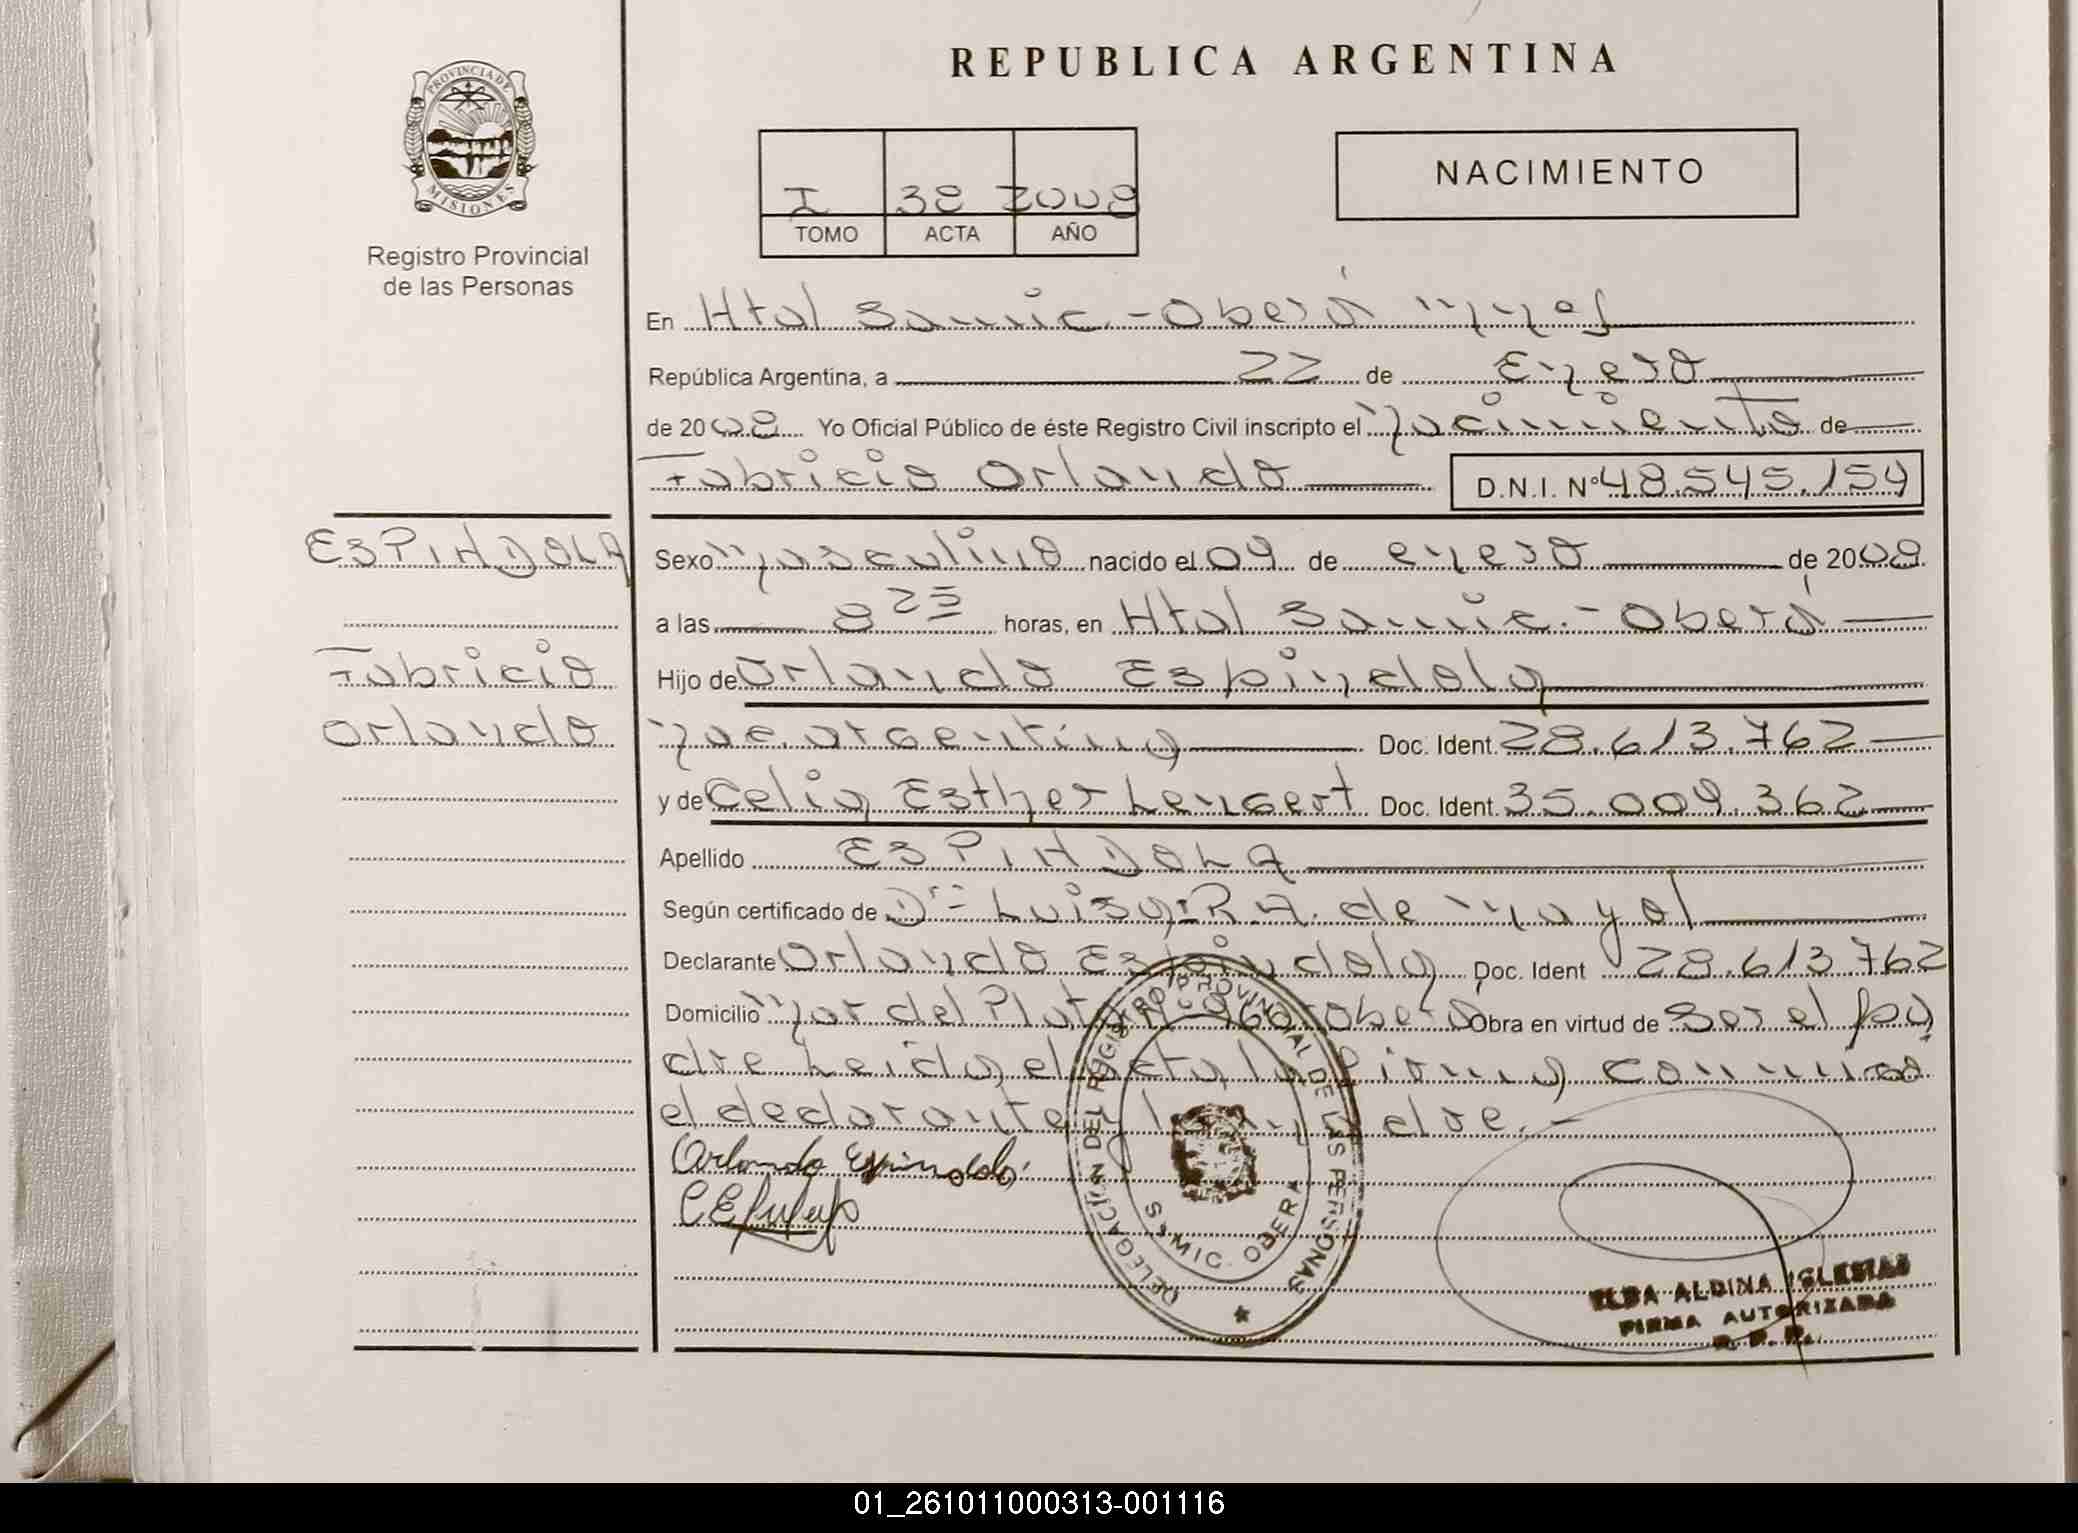 REPUBLICA ARGENTINA
PROVINCIA DE
MISIONES
Registro Provincial
de las Personas
I 38 2008
TOMO ACTA AÑO
NACIMIENTO
En Htal Samic - Oberá Mnes
República Argentina, a 22 de Enero
de 2008 Yo Oficial Público de éste Registro Civil inscripto el Nacimiento de
Fabricio Orlando D.N.I. Nº 48.545.154
ESPINDOLA
Fabricio
Orlando
Sexo Masculino nacido el 09 de enero de 2008
a las 8 25 horas, en Htal Samic. - Oberá
Hijo de Orlando Espindola
Nac. argentina Doc. Ident. 28.613.762
y de Celia Esther Lengert Doc. Ident. 35.009.362
Apellido ESPINDOLA
Según certificado de Dra Luisa R.A. de Mayol
Declarante Orlando Espindola Doc. Ident 28.613.762
Domicilio Mar del Plata Nº 960 Oberá Obra en virtud de Ser el pa
dre Leida el acta la firma conmigo
el declarante y la madre. -
Orlando Espindola
DELEGACIÓN DEL REGISTRO PROVINCIAL DE LAS PERSONAS
SAMIC. OBERA
ELBA ALDINA IGLESIAS
FIRMA AUTORIZADA
R. P. P.
01_261011000313-001116